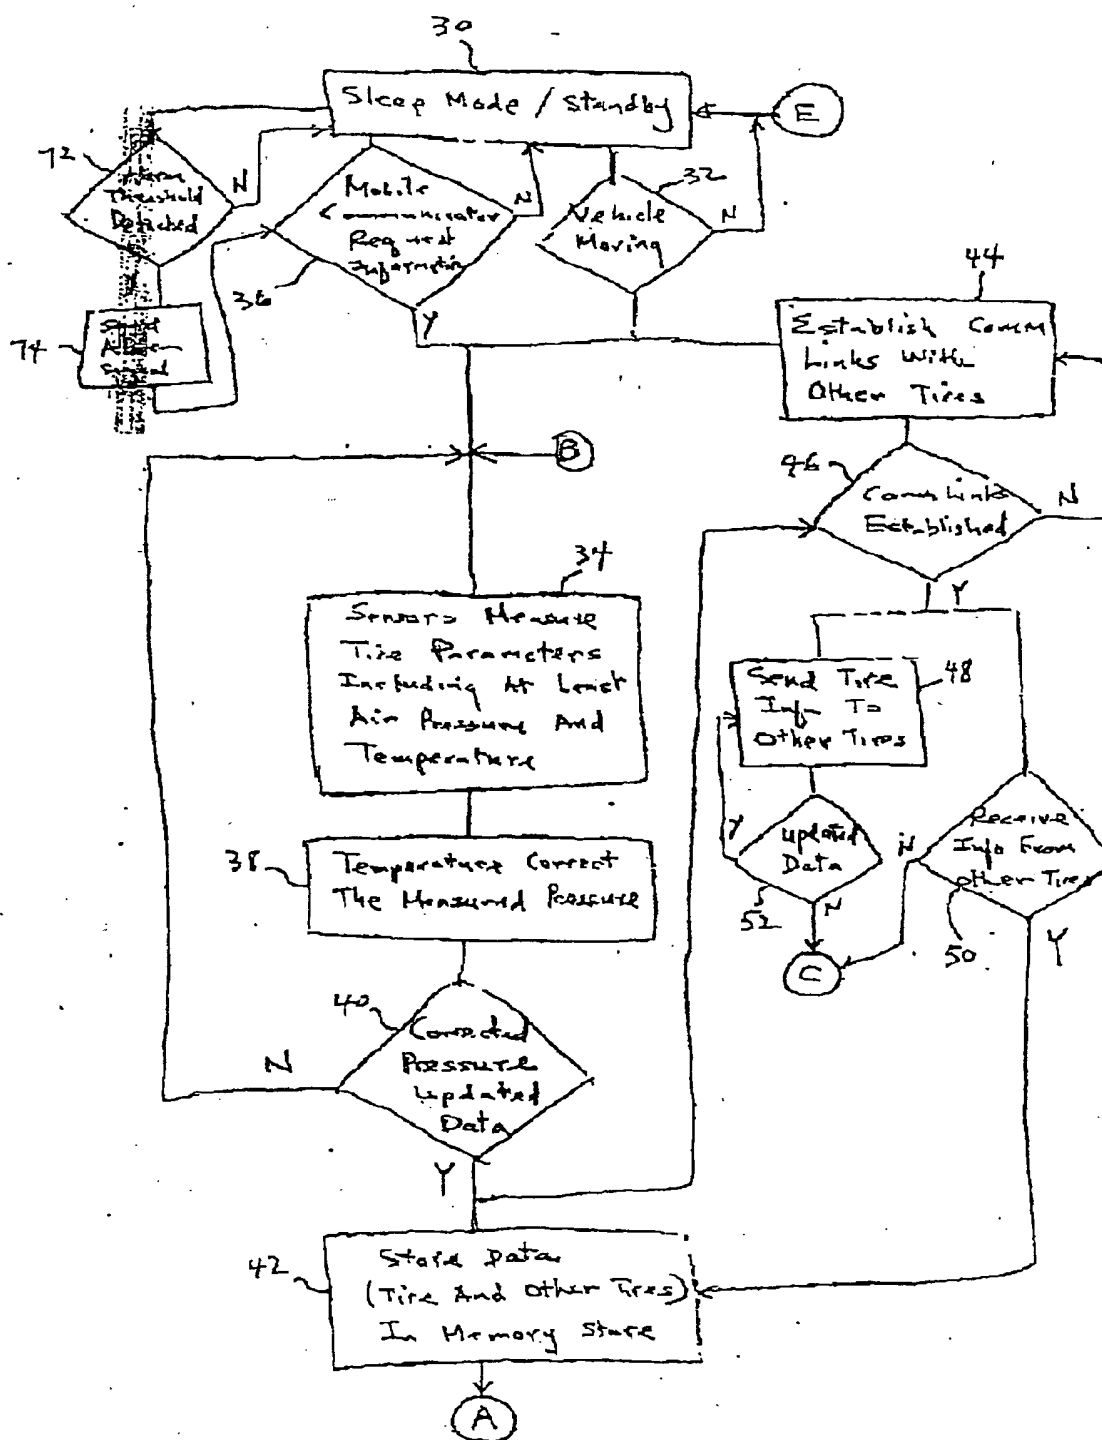 30
Sleep Mode / Standby
E
72
Alarm
Threshold
Detected
N
Mobile
Communicator
Request
Information
N
36
Y
32
Vehicle
Moving
N
74
Send
Alarm
Signal
44
Establish Comm
Links With
Other Tires
B
46
Comm Links
Established
N
Y
34
Sensors Measure
Tire Parameters
Including At Least
Air Pressure And
Temperature
48
Send Tire
Info To
Other Tires
38
Temperature Correct
The Measured Pressure
Y
Updated
Data
52
N
N
Receive
Info From
Other Tires
50
Y
C
40
Corrected
Pressure
Updated
Data
N
Y
42
Store Data
(Tire And Other Tires)
In Memory Store
A